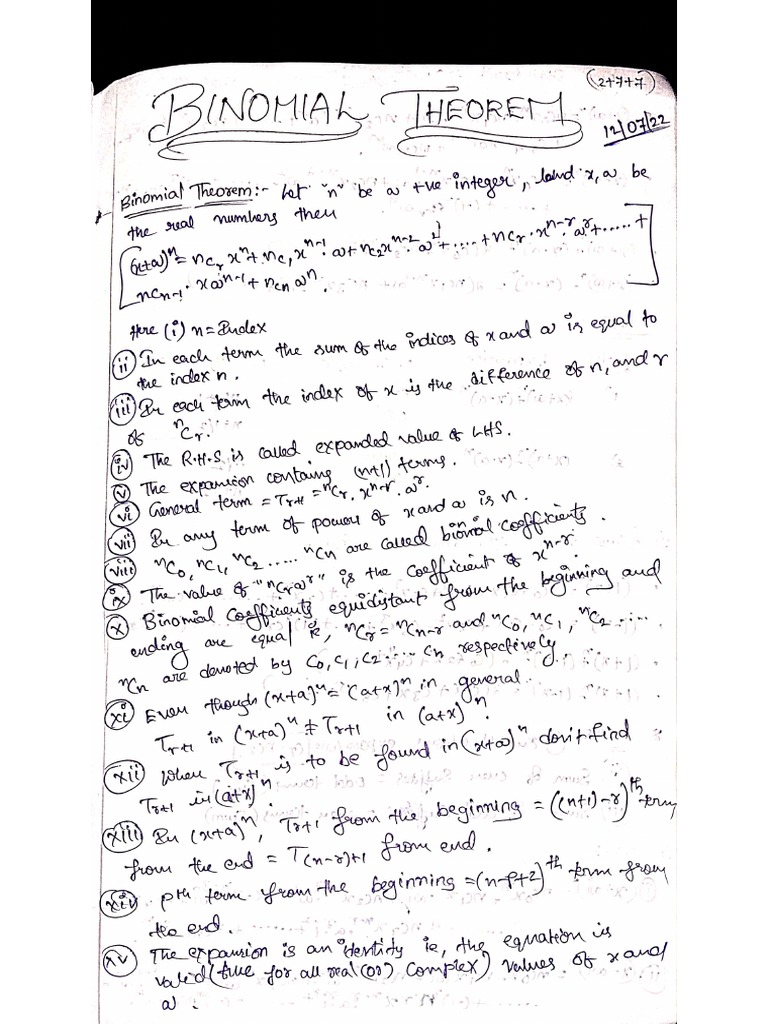 (2+7+7)
BINOMIAL THEOREM
12/07/22
Binomial Theorem:- Let "n" be a +ve integer, and x, a be
the real numbers then
(x+a)ⁿ = nCᵣ xⁿ + nC₁ xⁿ⁻¹ · a + nC₂ xⁿ⁻² · a² + .... + nCᵣ · xⁿ⁻ʳ · aʳ + ..... +
nCₙ₋₁ · x aⁿ⁻¹ + nCₙ aⁿ.
Here (i) n = Index
(ii) In each term the sum of the indices of x and a is equal to
the index n.
(iii) In each term the index of x is the difference of n, and r
of ⁿCᵣ.
(iv) The R.H.S. is called expanded value of LHS.
(v) The expansion containg (n+1) terms.
(vi) General term = Tᵣ₊₁ = ⁿCᵣ. xⁿ⁻ʳ. aʳ.
(vii) In any term of powers of x and a is n.
(viii) ⁿC₀, ⁿC₁, ⁿC₂ ..... ⁿCₙ are called binomial coefficients.
(ix) The value of "ⁿCᵣ aʳ" is the coefficient of xⁿ⁻ʳ.
(x) Binomial Coefficients equidistant from the beginning and
ending are equal ie, ⁿCᵣ = ⁿCₙ₋ᵣ and ⁿC₀, ⁿC₁, ⁿC₂ .....
ⁿCₙ are denoted by C₀, C₁, C₂ ..... Cₙ respectively.
(xi) Even though (x+a)ⁿ = (a+x)ⁿ in general
Tᵣ₊₁ in (x+a)ⁿ ≠ Tᵣ₊₁ in (a+x)ⁿ.
(xii) When Tᵣ₊₁ is to be found in (x+a)ⁿ don't find
Tᵣ₊₁ in (a+x)ⁿ.
(xiii) In (x+a)ⁿ, Tᵣ₊₁ from the beginning = ((n+1)-r)ᵗʰ term
from the end = T(n-r)+1 from end.
(xiv) pᵗʰ term from the beginning = (n-p+2)ᵗʰ term from
the end.
(xv) The expansion is an identity ie, the equation is
valid (true for all real (or) complex) values of x and
a.